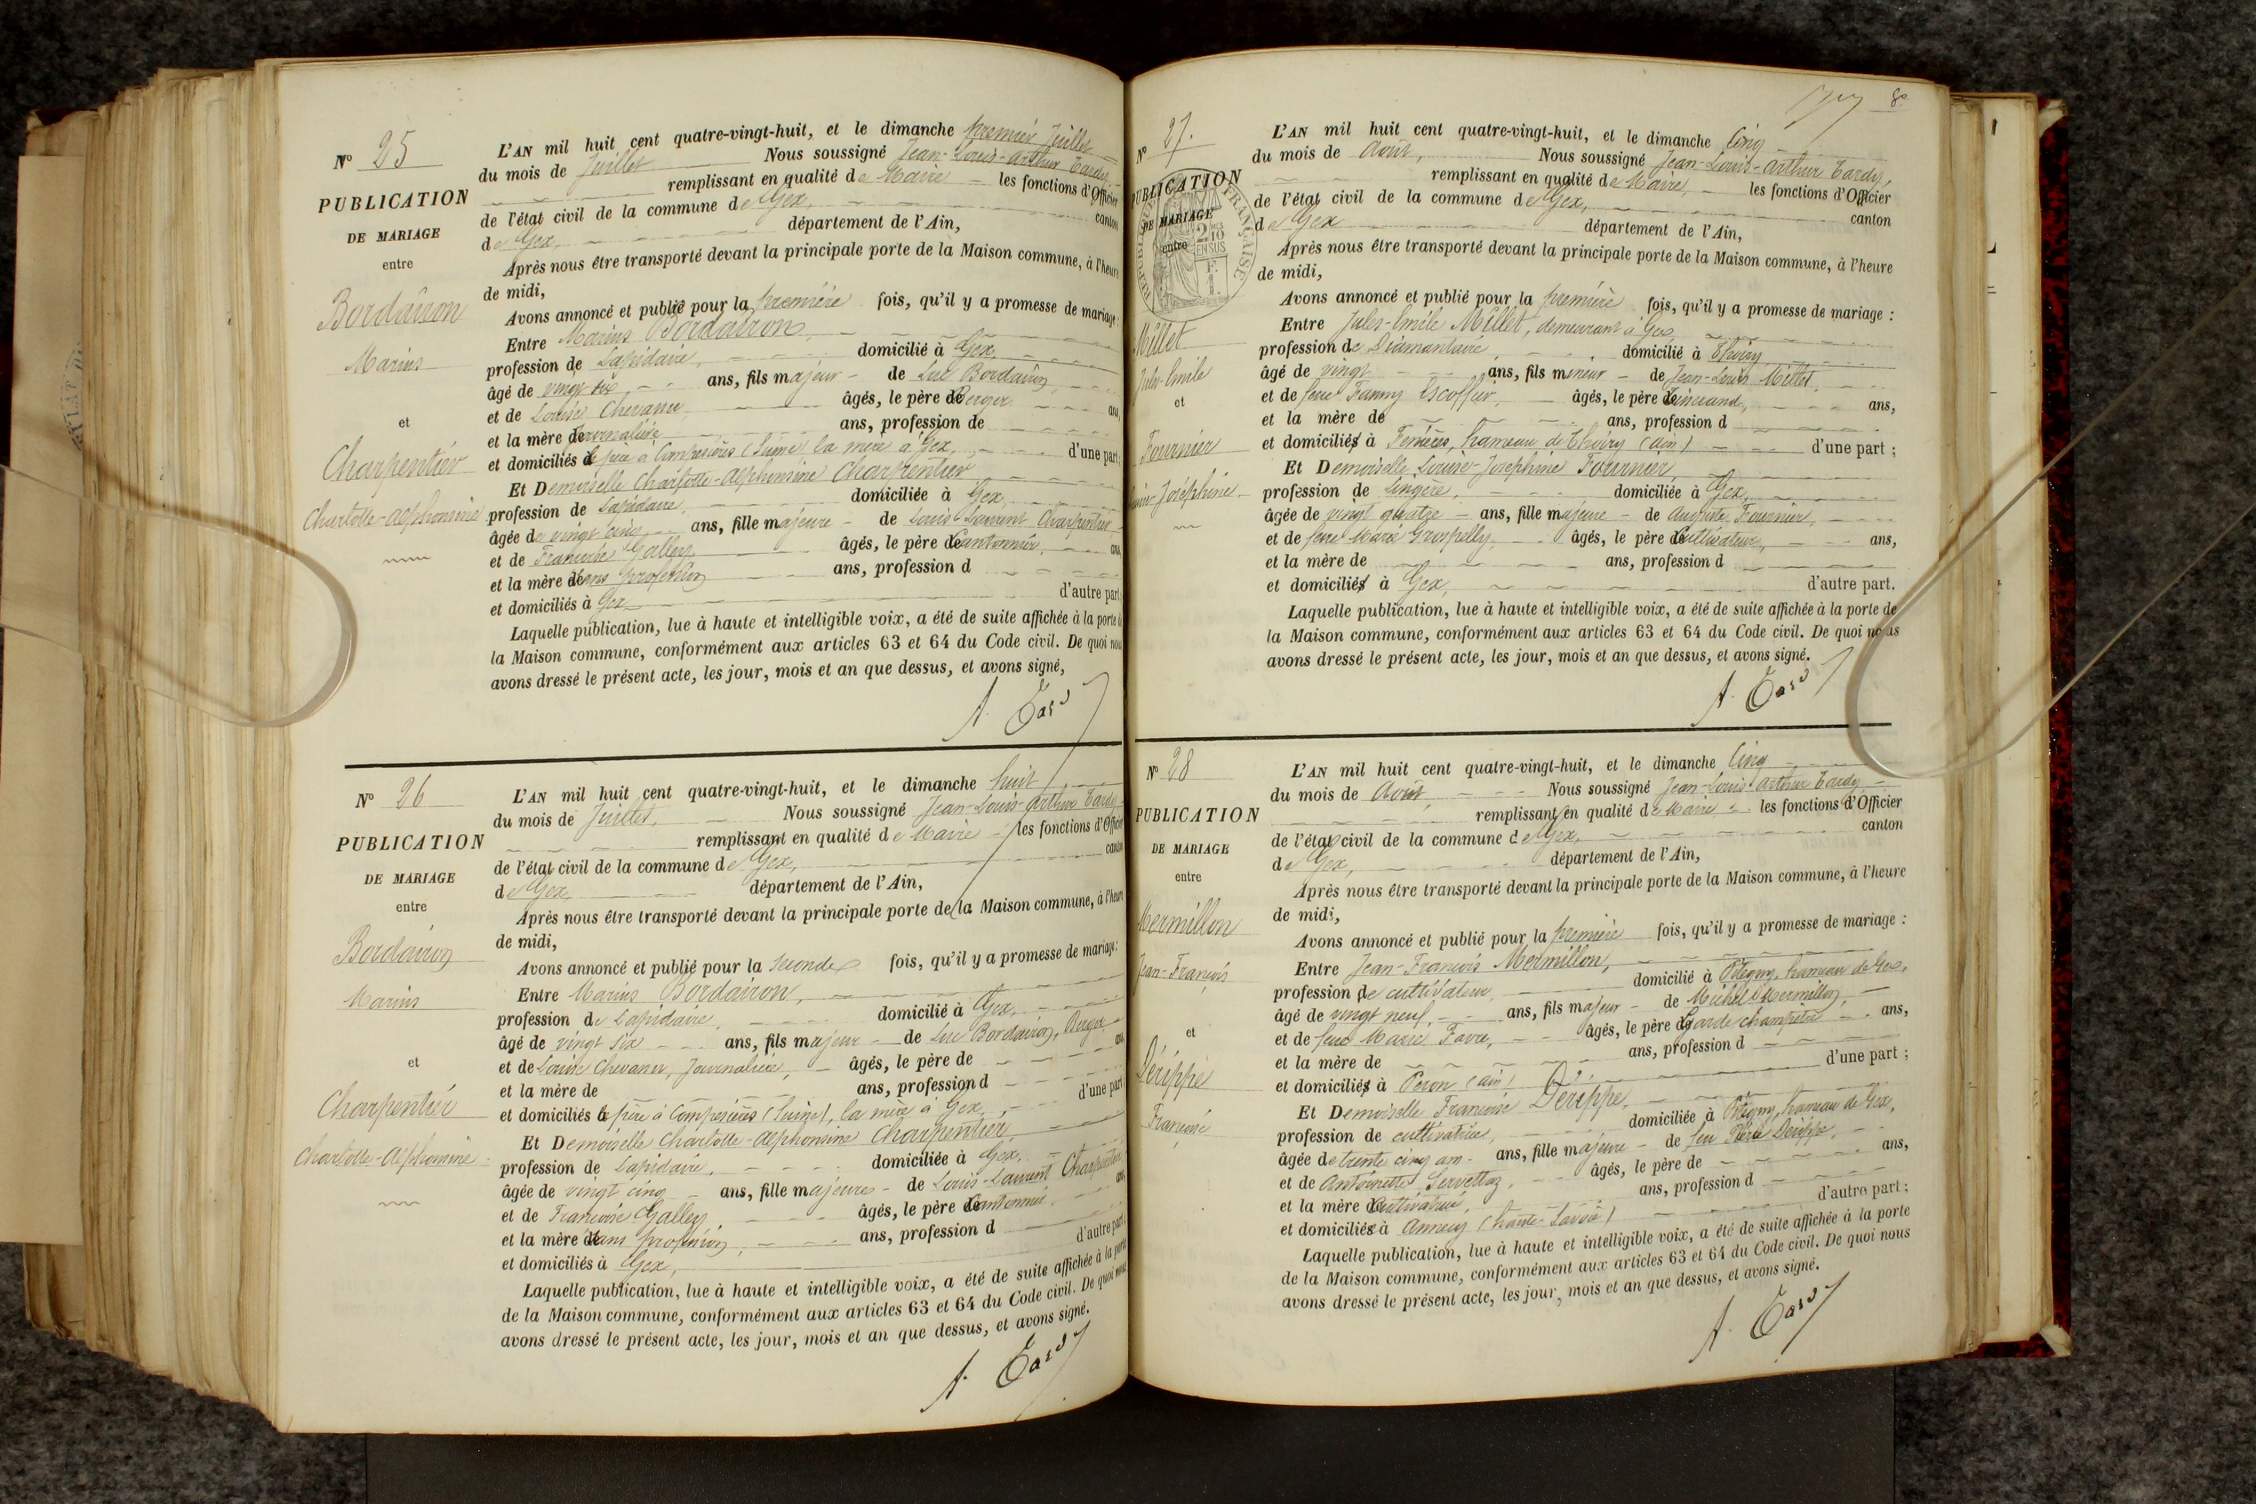 N° 25
PUBLICATION
DE MARIAGE
entre
Bordairon
Marius
et
Charpentier
Charlotte-Alphonsine
L'AN mil huit cent quatre-vingt-huit, et le dimanche premier Juillet
du mois de Juillet Nous soussigné Jean-Louis-Arthur Tardy,
remplissant en qualité de Maire les fonctions d'Officier
de l'état civil de la commune de Gex, canton
de Gex, département de l'Ain,
Après nous être transporté devant la principale porte de la Maison commune, à l'heure
de midi,
Avons annoncé et publié pour la première fois, qu'il y a promesse de mariage :
Entre Marius Bordairon,
profession de Lapidaire, domicilié à Gex,
âgé de vingt six ans, fils majeur de Luc Bordairon,
et de Louise Chevanier âgés, le père de Berger ans,
et la mère de Journalière ans, profession de
et domiciliés à le père à Compesières (Suisse) la mère à Gex, d'une part ;
Et Demoiselle Charlotte-Alphonsine Charpentier
profession de Lapidaire, domiciliée à Gex,
âgée de vingt cinq ans, fille majeure de Louis-Laurent Charpentier
et de Françoise Galley âgés, le père de Cantonnier, ans,
et la mère de sans profession ans, profession d
et domiciliés à Gex d'autre part.
Laquelle publication, lue à haute et intelligible voix, a été de suite affichée à la porte de
la Maison commune, conformément aux articles 63 et 64 du Code civil. De quoi nous
avons dressé le présent acte, les jour, mois et an que dessus, et avons signé,
A. Tardy
N° 26
PUBLICATION
DE MARIAGE
entre
Bordairon
Marius
et
Charpentier
Charlotte-Alphonsine
L'AN mil huit cent quatre-vingt-huit, et le dimanche huit
du mois de Juillet, Nous soussigné Jean-Louis-Arthur Tardy
remplissant en qualité de Maire les fonctions d'Officier
de l'état civil de la commune de Gex, canton
de Gex département de l'Ain,
Après nous être transporté devant la principale porte de la Maison commune, à l'heure
de midi,
Avons annoncé et publié pour la seconde fois, qu'il y a promesse de mariage :
Entre Marius Bordairon,
profession de Lapidaire, domicilié à Gex,
âgé de vingt six ans, fils majeur de Luc Bordairon, Berger
et de Louise Chevanier, Journalière, âgés, le père de ans,
et la mère de ans, profession d
et domiciliés à le père à Compesières (Suisse), la mère à Gex, d'une part
Et Demoiselle Charlotte-Alphonsine Charpentier,
profession de Lapidaire, domiciliée à Gex,
âgée de vingt cinq ans, fille majeure de Louis-Laurent Charpentier
et de Françoise Galley âgés, le père de Cantonnier ans,
et la mère de sans profession, ans, profession d
et domiciliés à Gex, d'autre part
Laquelle publication, lue à haute et intelligible voix, a été de suite affichée à la porte
de la Maison commune, conformément aux articles 63 et 64 du Code civil. De quoi nous
avons dressé le présent acte, les jour, mois et an que dessus, et avons signé.
A. Tardy
8
N° 27.
PUBLICATION
DE MARIAGE
entre
RÉPUBLIQUE FRANÇAISE
2/10
EN SUS
Millet
Jules-Emile
et
Fournier
Louise-Joséphine
L'AN mil huit cent quatre-vingt-huit, et le dimanche Cinq
du mois de Août, Nous soussigné Jean-Louis-Arthur Tardy,
remplissant en qualité de Maire, les fonctions d'Officier
de l'état civil de la commune de Gex, canton
de Gex département de l'Ain,
Après nous être transporté devant la principale porte de la Maison commune, à l'heure
de midi,
Avons annoncé et publié pour la première fois, qu'il y a promesse de mariage :
Entre Jules-Emile Millet, demeurant à Gex
profession de Diamantaire, domicilié à Thoiry
âgé de vingt ans, fils mineur de Jean-Louis Millet,
et de feue Fanny Escoffier, âgés, le père de ans,
et la mère de ans, profession d
et domiciliés à Fenières, hameau de Thoiry (Ain) d'une part ;
Et Demoiselle Louise-Joséphine Fournier,
profession de Lingère, domiciliée à Gex,
âgée de vingt quatre ans, fille majeure de Auguste Fournier,
et de feue Marie Grospelly, âgés, le père de Cultivateur, ans,
et la mère de ans, profession d
et domiciliés à Gex, d'autre part.
Laquelle publication, lue à haute et intelligible voix, a été de suite affichée à la porte de
la Maison commune, conformément aux articles 63 et 64 du Code civil. De quoi nous
avons dressé le présent acte, les jour, mois et an que dessus, et avons signé.
A. Tardy
N° 28
PUBLICATION
DE MARIAGE
entre
Mermillon
Jean-François
et
Dérippe
Françoise
L'AN mil huit cent quatre-vingt-huit, et le dimanche Cinq
du mois de Août, Nous soussigné Jean-Louis-Arthur Tardy
remplissant en qualité de Maire les fonctions d'Officier
de l'état civil de la commune de Gex, canton
de Gex, département de l'Ain,
Après nous être transporté devant la principale porte de la Maison commune, à l'heure
de midi,
Avons annoncé et publié pour la première fois, qu'il y a promesse de mariage :
Entre Jean-François Mermillon,
profession de cultivateur, domicilié à Pitegny, hameau de Gex,
âgé de vingt neuf, ans, fils majeur de Michel Mermillon,
et de feue Marie Favre, âgés, le père de Garde champêtre ans,
et la mère de ans, profession d
et domiciliés à Péron (Ain) d'une part ;
Et Demoiselle Françoise Dérippe,
profession de cultivatrice, domiciliée à Pitegny, hameau de Gex,
âgée de trente cinq ans ans, fille majeure de feu Pierre Dérippe,
et de Antoinette Servettaz, âgés, le père de ans,
et la mère de Cultivatrice, ans, profession d
et domiciliés à Annecy (Haute-Savoie) d'autre part ;
Laquelle publication, lue à haute et intelligible voix, a été de suite affichée à la porte
de la Maison commune, conformément aux articles 63 et 64 du Code civil. De quoi nous
avons dressé le présent acte, les jour, mois et an que dessus, et avons signé.
A. Tardy